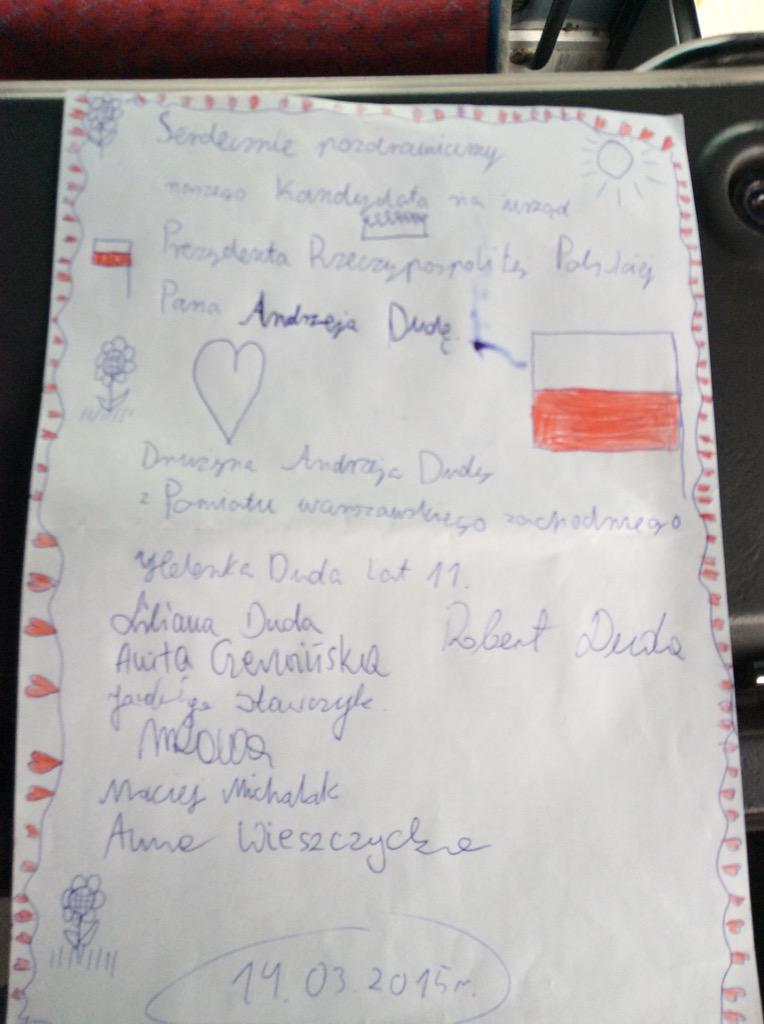 Serdecznie pozdrawiamy
naszego Kandydata na urząd
Prezydenta Rzeczypospolitej Polskiej
Pana Andrzeja Dudę
Drużyna Andrzeja Dudy
z Powiatu warszawskiego zachodniego
Helenka Duda lat 11.
Liliana Duda
Robert Duda
Anita
Jadwiga Sławczyk
Maciej Michalak
Anna Wieszczycka
14.03.2015r.